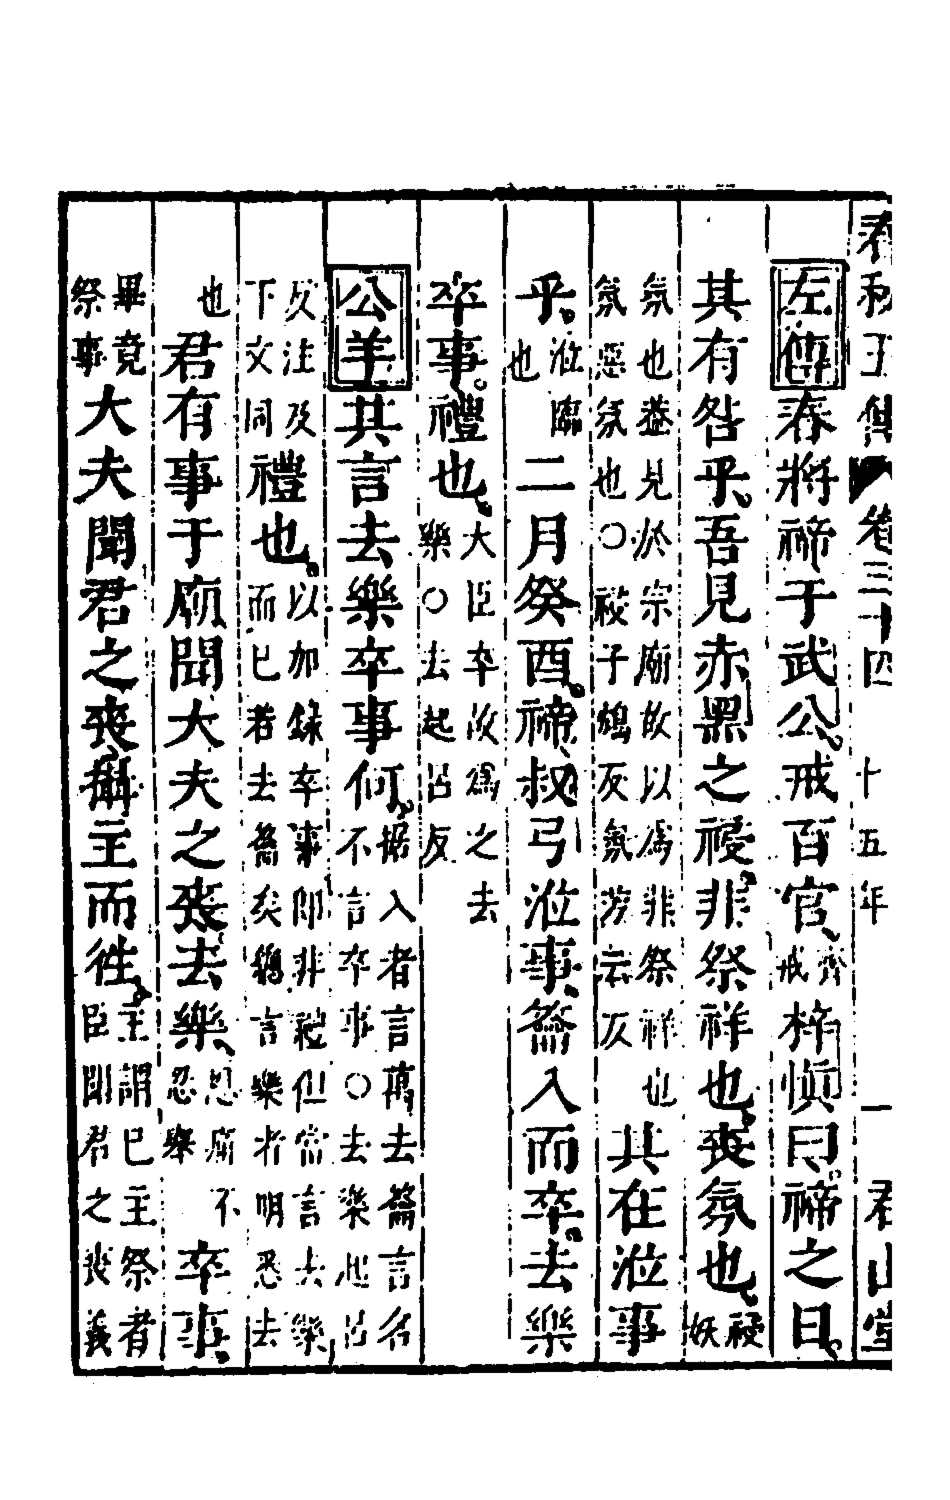 春秋五傳 卷三十四 十五年 一 君山堂
左傳春將禘于武公戒百官齊戒梓慎曰禘之日
其有咎乎吾見赤黑之祲非祭祥也喪氛也祲妖
氛也蓋見於宗廟故以為非祭祥也氛惡氛也○祲子鴆反氛芳云反其在涖事
乎涖臨也二月癸酉禘叔弓涖事籥入而卒去樂
卒事禮也大臣卒故為之去樂○去起呂反
公羊其言去樂卒事何据入者言萬去籥言名不言卒事○去樂起呂
反注及下文同禮也以加錄卒事即非禮但當言去樂而已若去籥矣總言樂者明悉去
也君有事于廟聞大夫之喪去樂恩痛不忍舉卒事
畢竟祭事大夫聞君之喪攝主而往主謂已主祭者臣聞君之喪義